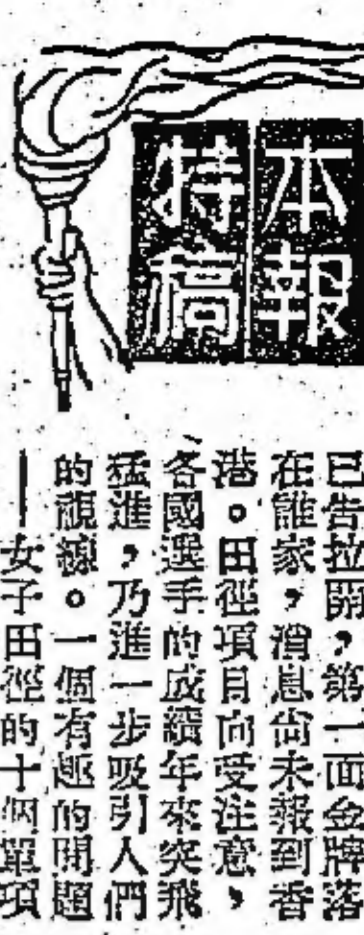 本報
特稿
已告拉開，第一面金牌落
在誰家，消息尚未報到香
港。田徑項目向受注意，
各國選手的成績年來突飛
猛進，乃進一步吸引人們
的視線。一個有趣的問題
——女子田徑的十個單項